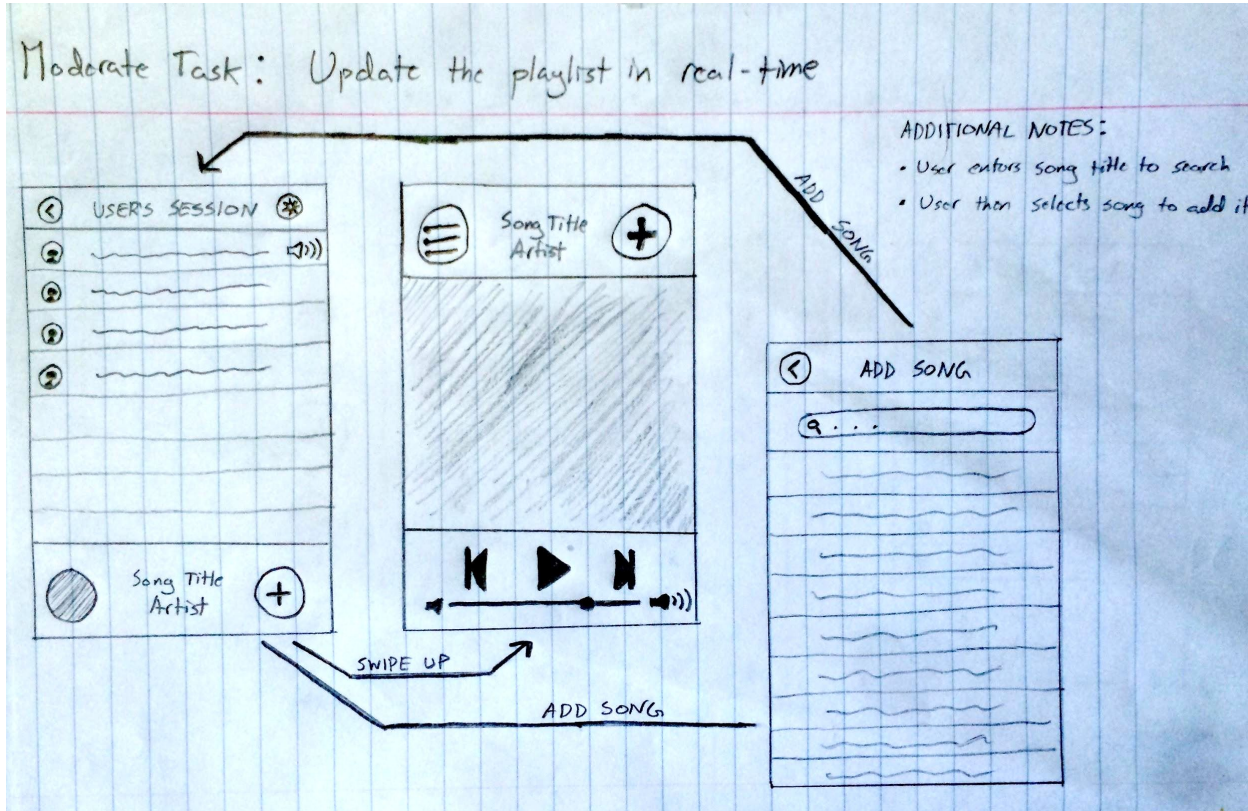 Moderate Task: Update the playlist in real-time
ADDITIONAL NOTES:
• User enters song title to search
• User then selects song to add it
ADD SONG
USERS SESSION
Song Title
Artist
Song Title
Artist
ADD SONG
...
SWIPE UP
ADD SONG